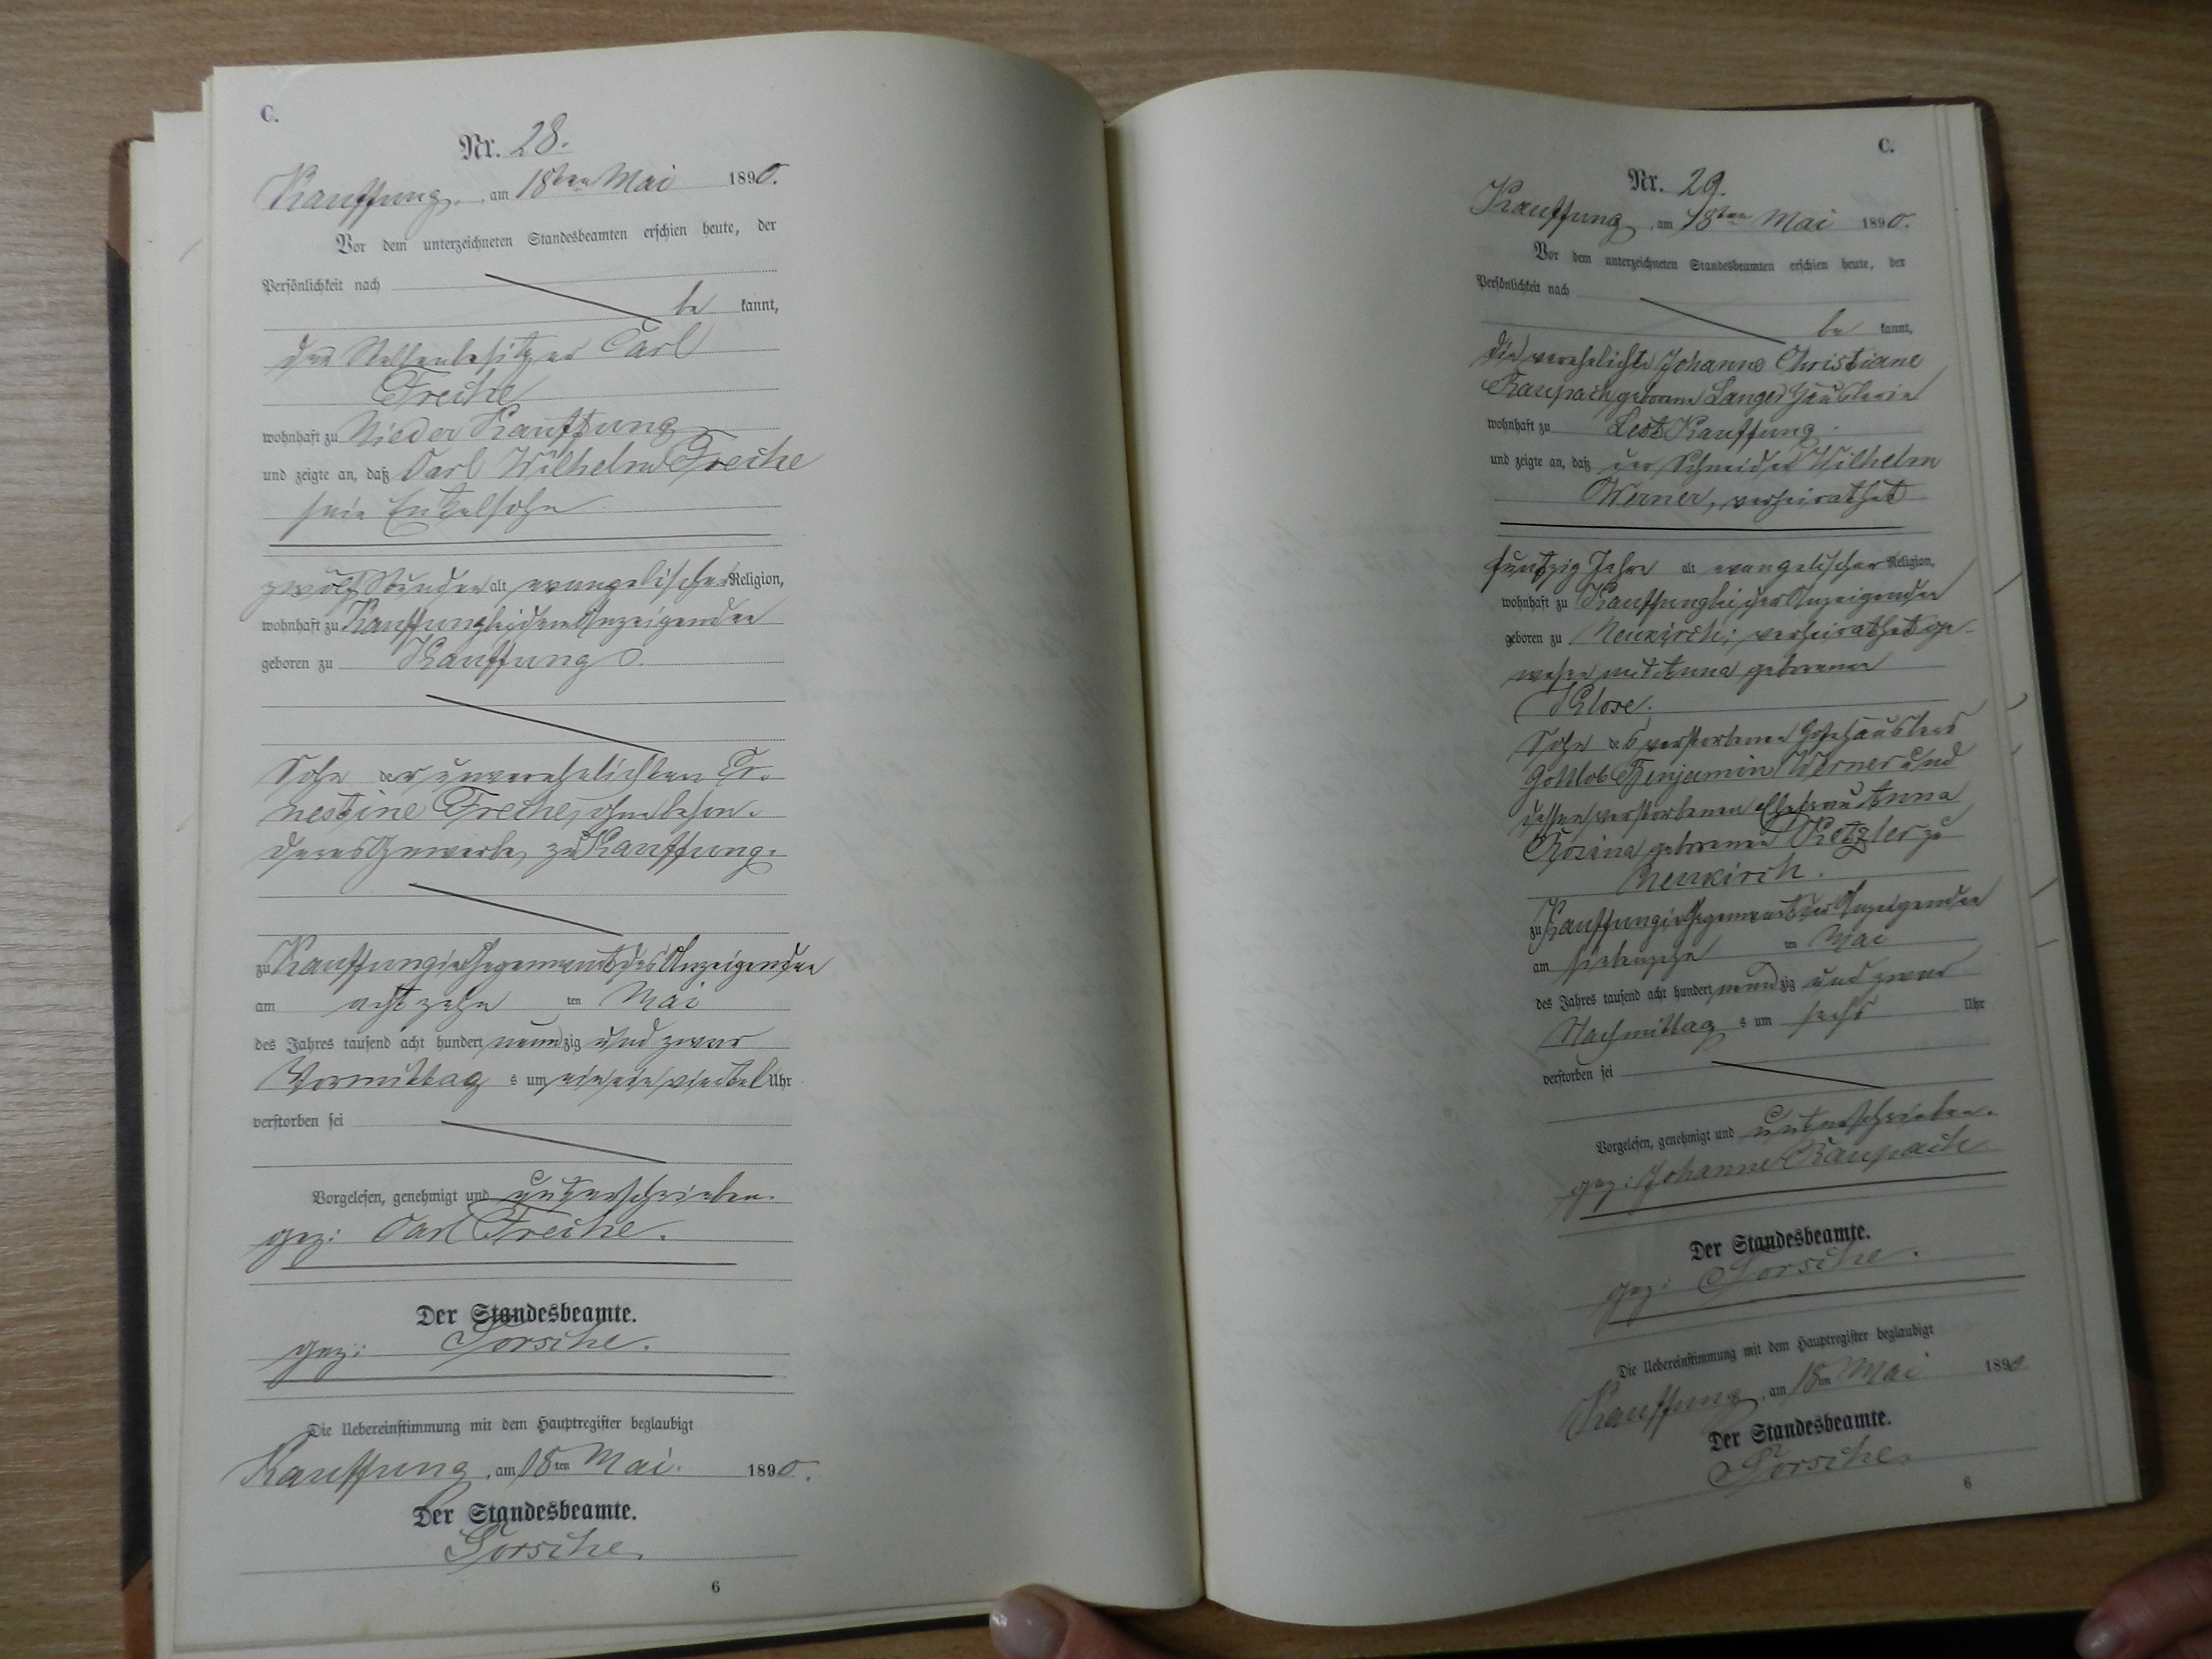 C.
Nr. 28.
Kauffung, am 18ten Mai 1890.
Vor dem unterzeichneten Standesbeamten erschien heute, der
Persönlichkeit nach
be kannt,
der Stellenbesitzer Carl
Freche
wohnhaft zu Nieder Kauffung
und zeigte an, daß Carl Wilhelm Freche
sein Enkelsohn
zwölf Stunden alt evangelischer Religion,
wohnhaft zu Kauffung bei dem Anzeigenden
geboren zu Kauffung
Sohn der unverehelichten Er-
nestine Freche, ohne beson-
deres Gewerbe, zu Kauffung.
zu Kauffung in Gegenwart des Anzeigenden
am acht zehn ten Mai
des Jahres tausend acht hundert neunzig und zwar
Vormittag s um ein viertel Uhr
verstorben sei
Vorgelesen, genehmigt und unterschrieben.
gez: Carl Freche.
Der Standesbeamte.
gez: Sorsche.
Die Uebereinstimmung mit dem Hauptregister beglaubigt
Kauffung, am 18ten Mai. 1890.
Der Standesbeamte.
Sorsche.
6
C.
Nr. 29.
Kauffung, am 18ten Mai 1890.
Vor dem unterzeichneten Standesbeamten erschien heute, der
Persönlichkeit nach
be kannt,
die verehelichte Johanne Christiane
Raupach geborene Langer Häuslerin
wohnhaft zu Lest Kauffung.
und zeigte an, daß der Schneider Wilhelm
Werner, verheirathet
funfzig Jahre alt evangelischer Religion,
wohnhaft zu Kauffung bei der Anzeigenden
geboren zu Neukirch; verheirathet ge-
wesen mit Anna geborenen
Klose;
Sohn des verstorbenen Hofehäuslers
Gottlob Benjamin Werner und
dessen verstorbenen Ehefrau Anna
Rosina geborenen zu
Neukirch.
zu Kauffung in Gegenwart der Anzeigenden
am siebenzehn ten Mai
des Jahres tausend acht hundert neunzig und zwar
Nachmittag s um sechs Uhr
verstorben sei
Vorgelesen, genehmigt und unterschrieben.
gez: Johanne Raupach
Der Standesbeamte.
gez: Sorsche.
Die Uebereinstimmung mit dem Hauptregister beglaubigt
Kauffung, am 18ten Mai 1890.
Der Standesbeamte.
Sorsche.
6